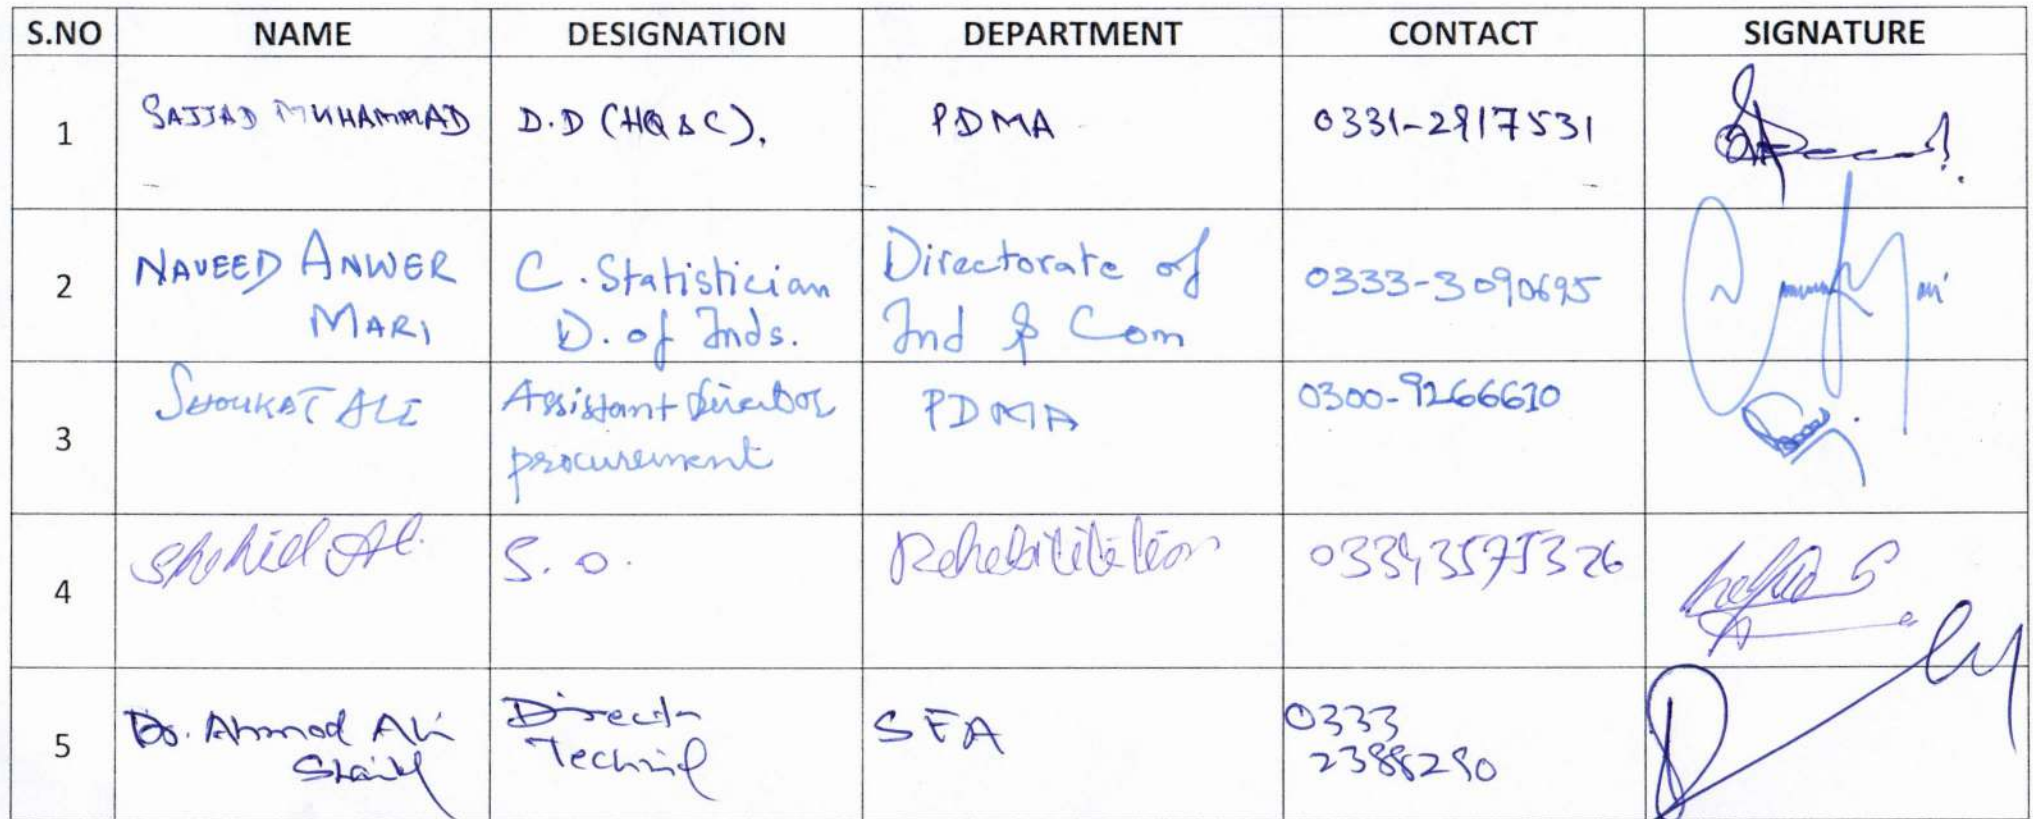 S.NO NAME DESIGNATION DEPARTMENT CONTACT SIGNATURE
1 SAJJAD MUHAMMAD D.D (HQ & C), PDMA 0331-2917531
2 NAVEED ANWER MARI C. Statistician D. of Inds. Directorate of Ind & Com 0333-3090695
3 SHOUKAT ALI Assistant Director procurement PDMA 0300-9266610
4 Shahid Al. S. O. Rehabilitation 03343575326
5 Dr. Ahmed Ali Shaikh Director Technil SFA 0333 2388290